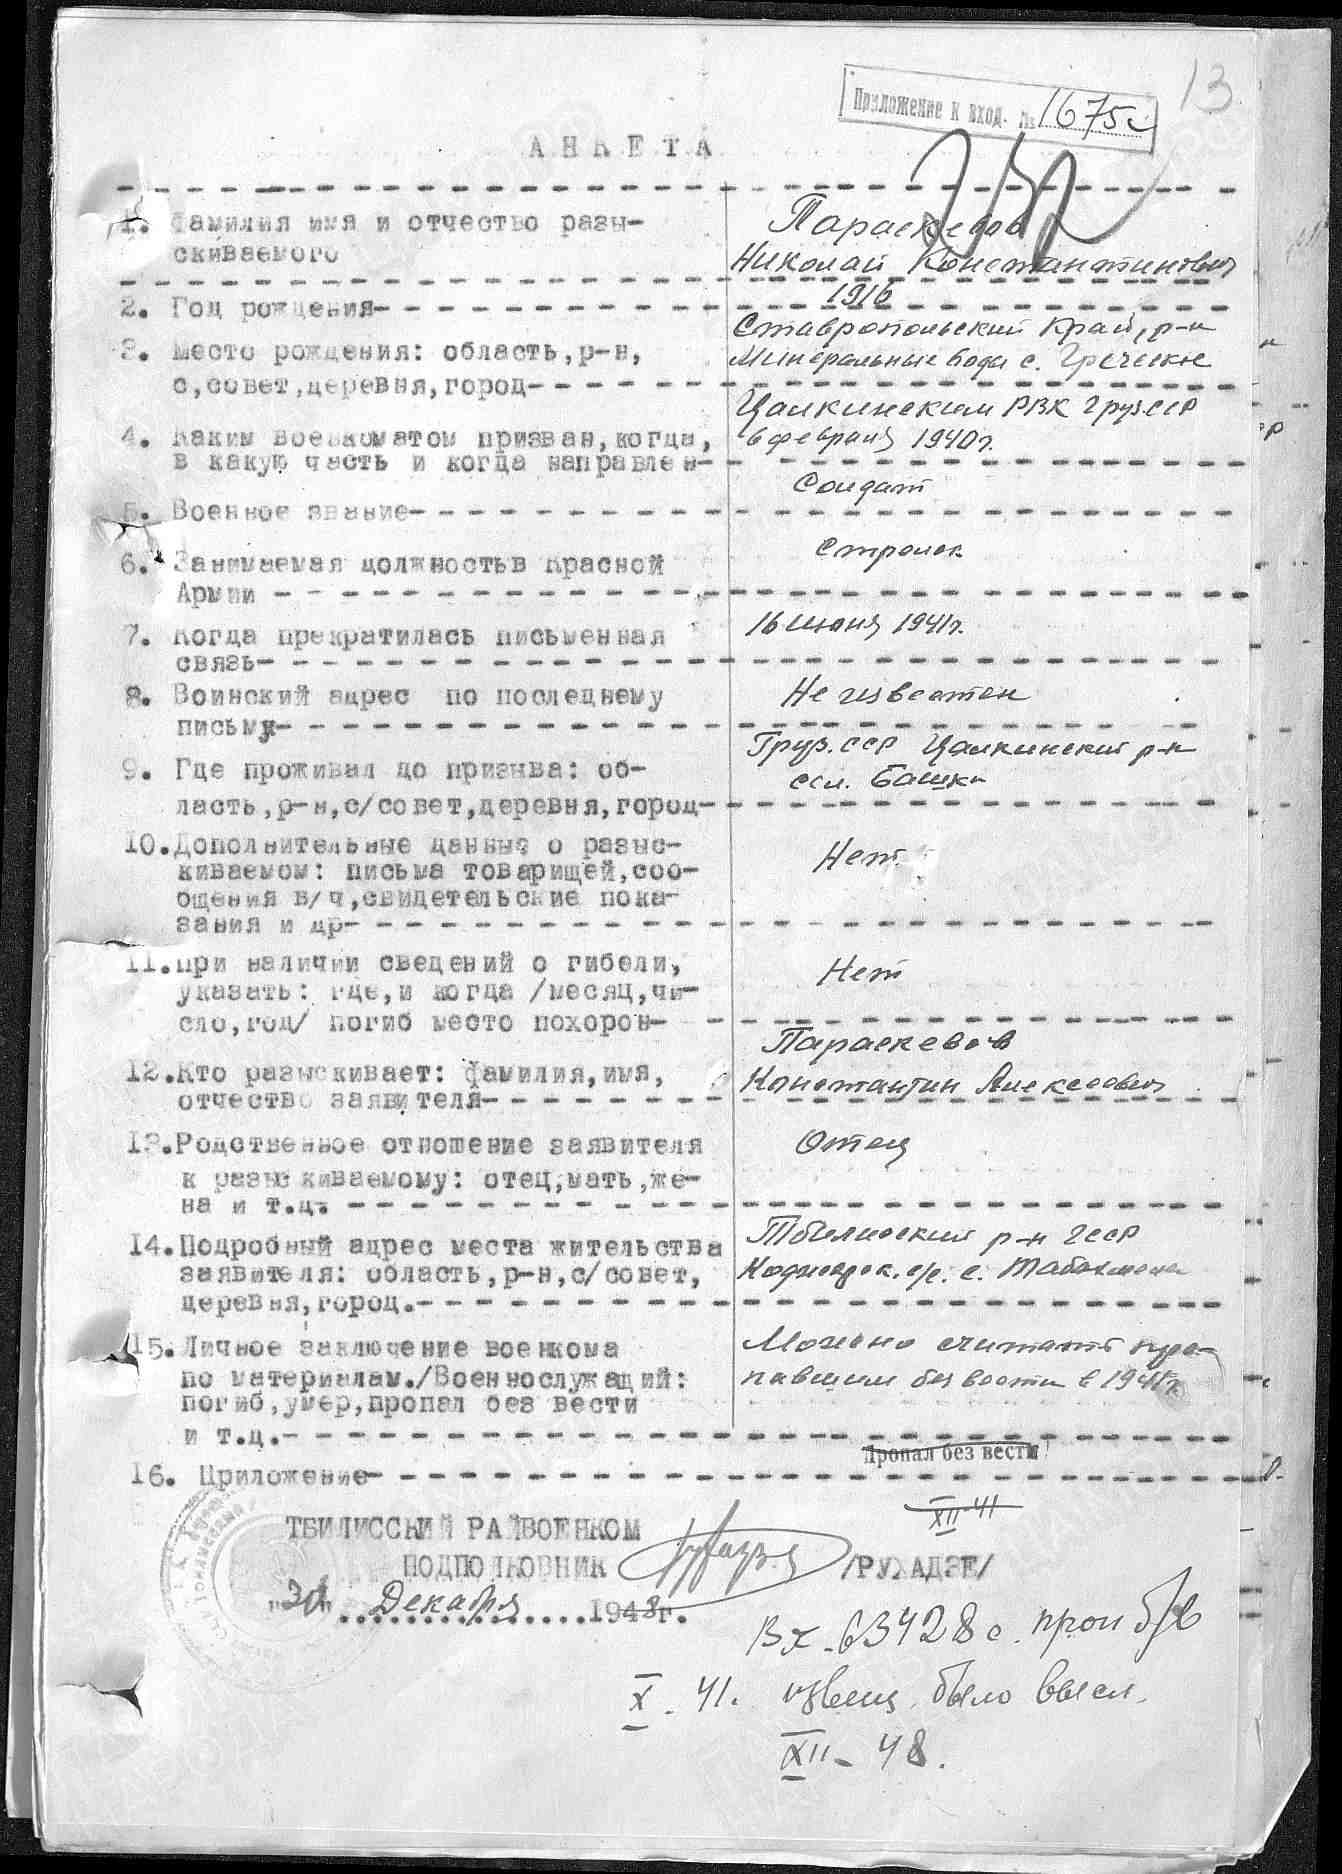 13
Приложение к вход. № 1675с
АНКЕТА
1. Фамилия имя и отчество разы-
скиваемого
Параскевов
Николай Константинович
2. Год рождения
1916
3. Место рождения: область, р-н,
с, совет, деревня, город
Ставропольский край, р-н
Минеральные воды с. Греческое
4. Каким военкоматом призван, когда,
в какую часть и когда направлен
Цалкинским РВК Груз.ССР
в феврале 1940г.
5. Военное звание
Солдат
6. Занимаемая должностьв Красной
Армии
Стрелок
7. Когда прекратилась письменная
связь
16 июня 1941г.
8. Воинский адрес по последнему
письму
Не известен
9. Где проживал до призыва: об-
ласть, р-н, с/совет, деревня, город
Груз.ССР Цалкинский р-н
сел. Башки
10. Дополнительные данные о разыс-
киваемом: письма товарищей, соо-
бщения в/ч, свидетельские пока-
зания и др
Нет.
11. При наличии сведений о гибели,
указать: где, и когда /месяц, чи-
сло, год/ погиб место похорон
Нет
12. Кто разыскивает: фамилия, имя,
отчество заявителя
Параскевов
Константин Алексеевич
13. Родственное отношение заявителя
к разыскиваемому: отец, мать, же-
на и т.д.
Отец
14. Подробный адрес места жительства
заявителя: область, р-н, с/совет,
деревня, город.
Тбилисский р-н ГССР
с/с. с. Табахмела
15. Личное заключение военкома
по материалам. /Военнослужащий:
погиб, умер, пропал без вести
и т.д.
Можно считать про-
павшим без вести в 1941г.
Пропал без вести
16. Приложение
XII-41
ТБИЛИССКИЙ РАЙВОЕНКОМ
ПОДПОЛКОВНИК /РУХАДЗЕ/
"30" Декабря 1948г.
Вх. 63428с. проп б/в
X - 41. извещ. было высл.
XII - 48.